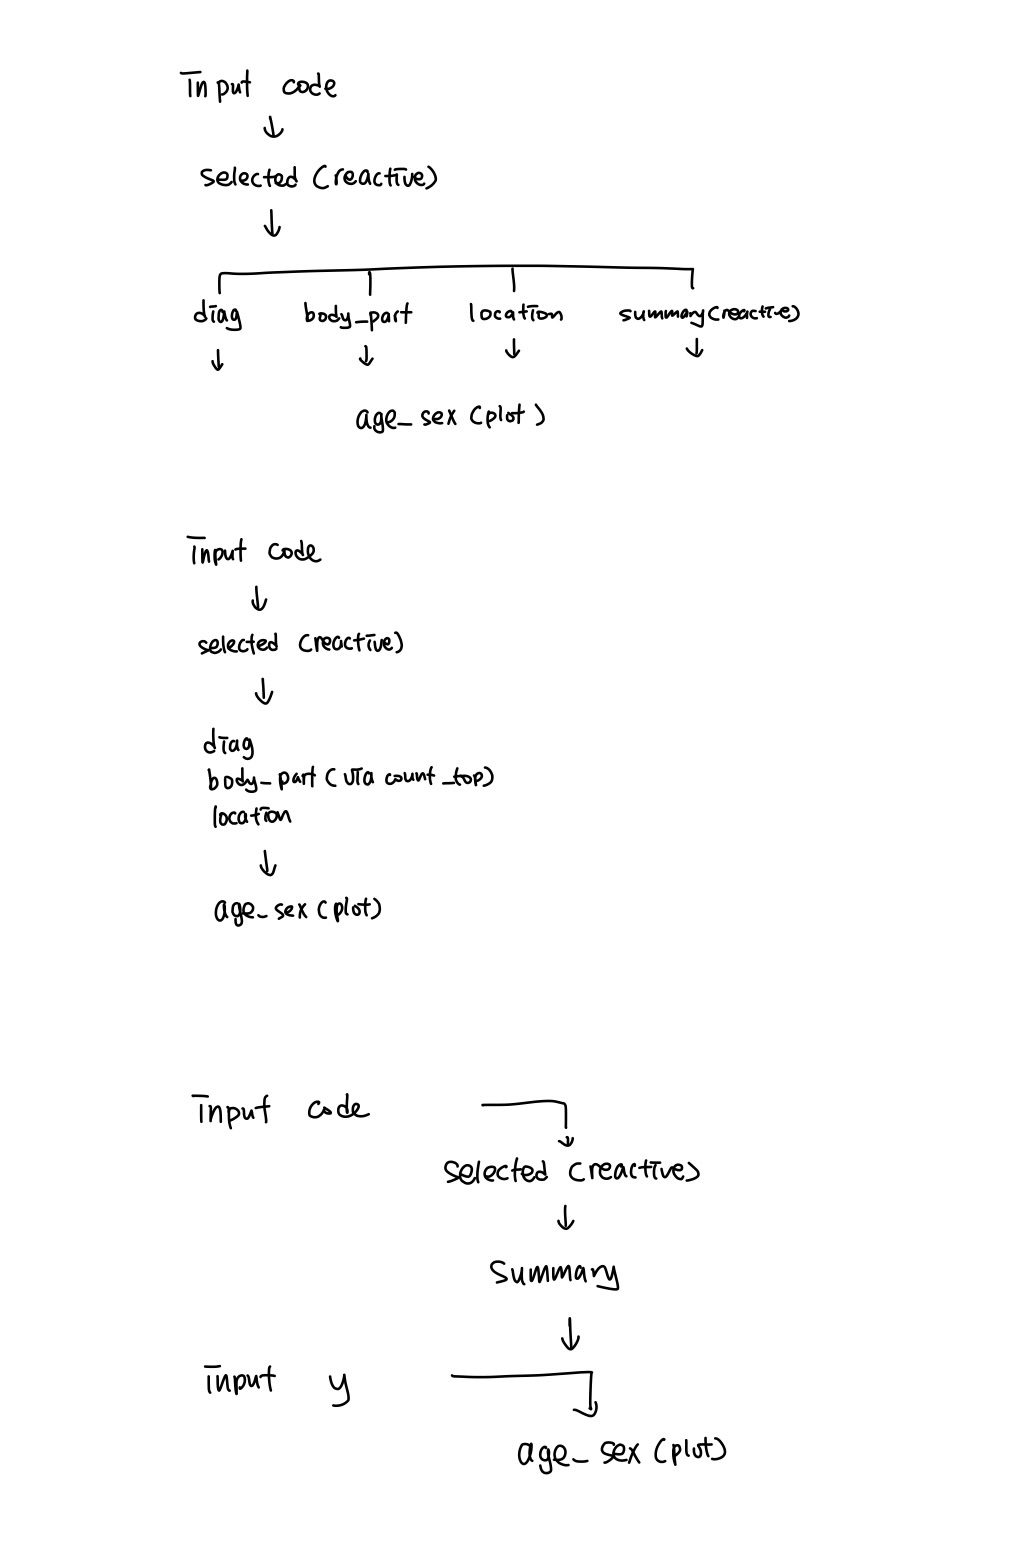 input code
selected (reactive)
diag body_part location summary (reactive)
age_sex (plot)
input code
selected (reactive)
diag
body_part (via count_top)
location
age_sex (plot)
input code
selected (reactive)
summary
input y
age_sex (plot)